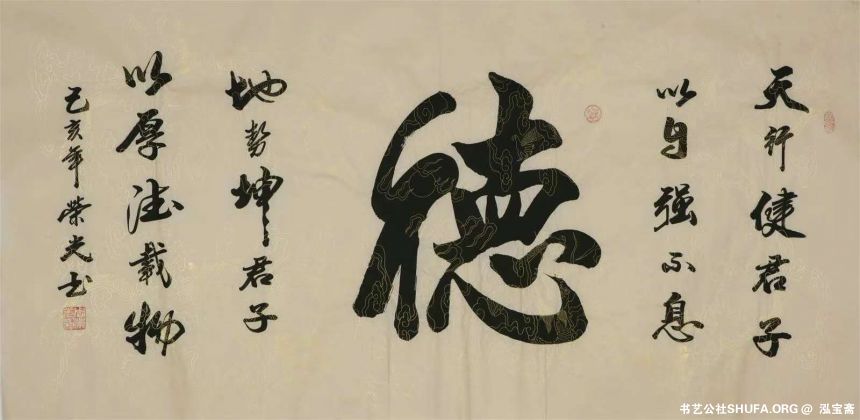 天行健君子
以自强不息
德
地势坤君子
以厚德載物
己亥年荣光书
书艺公社SHUFA.ORG @ 泓宝斋